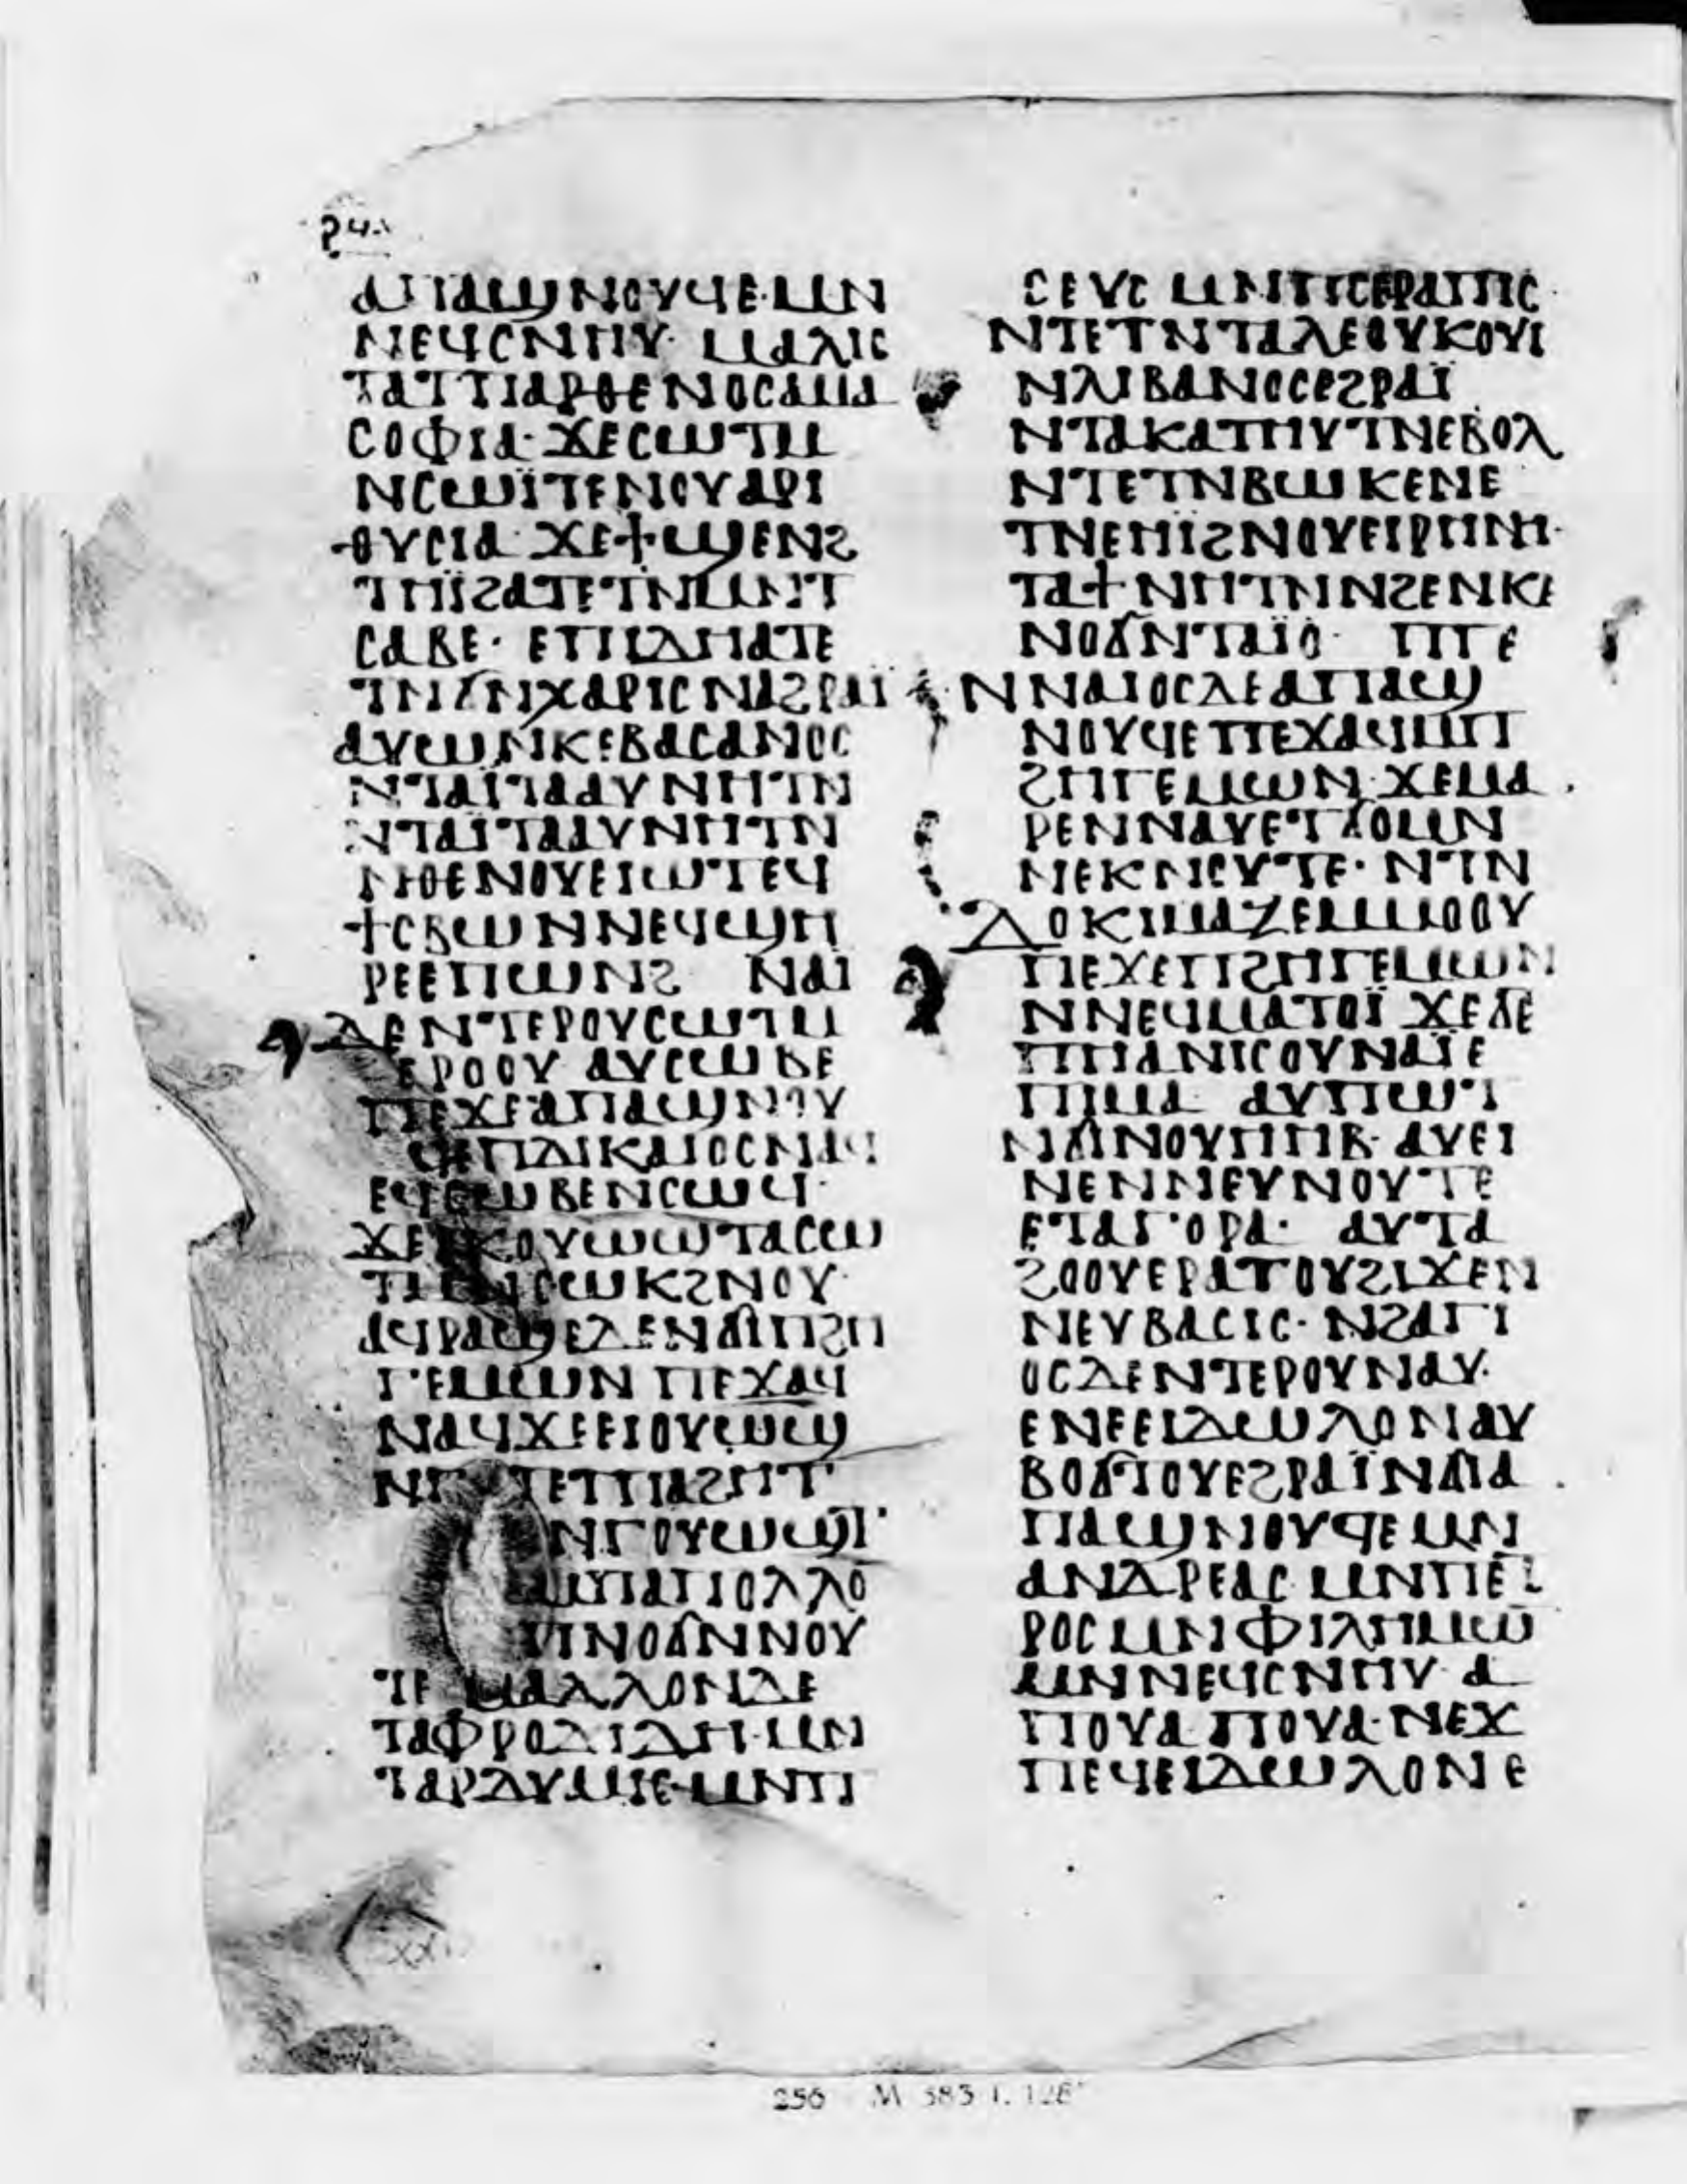 ⲁⲡⲁϣⲛⲟⲩϥⲉ·ⲙⲛ
ⲛⲉϥⲥⲛⲏⲩ· ⲙⲁⲗⲓⲥ
ⲧⲁⲧⲡⲁⲣⲑⲉⲛⲟⲥⲁⲙⲁ
ⲥⲟⲫⲓⲁ· ϫⲉⲥⲱⲧⲙ
ⲛⲥⲱⲓ̈ⲧⲉⲛⲟⲩⲁⲣⲓ
ⲑⲩⲥⲓⲁ ϫⲉϯϣⲉⲛϩ
ⲧⲏⲓ̈ϩⲁⲧⲉⲧⲛⲙⲛⲧ
ⲥⲁⲃⲉ· ⲉⲡⲓⲇⲏⲁⲧⲉ
ⲧⲛϭⲛⲭⲁⲣⲓⲥⲛⲁϩⲣⲁⲓ̈
ⲁⲩⲱⲛⲕⲉⲃⲁⲥⲁⲛⲟⲥ
ⲛⲧⲁⲓ̈ⲧⲁⲁⲩⲛⲏⲧⲛ
ⲛⲧⲁⲓ̈ⲧⲁⲁⲩⲛⲏⲧⲛ
ⲛⲑⲉⲛⲟⲩⲉⲓⲱⲧⲉϥ
ϯⲥⲃⲱⲛⲛⲉϥϣⲏ
ⲣⲉⲉⲡⲱⲛϩ ⲛⲁⲓ̈
ⲇⲉⲛⲧⲉⲣⲟⲩⲥⲱⲧⲙ
ⲉⲣⲟⲟⲩ ⲁⲩⲥⲱⲃⲉ
ⲡⲉϫⲉⲁⲡⲁϣⲛⲟⲩ
ϥⲉⲡⲇⲓⲕⲁⲓⲟⲥⲛⲁϥ
ⲉϥⲥⲱⲃⲉⲛⲥⲱϥ·
ⲟⲩⲱⲱⲧⲁⲥⲥⲱ
ⲛⲥⲱⲕϩⲛⲟⲩ
ⲁϥⲣⲁϣⲉⲇⲉⲛϭⲓⲡϩⲏ
ⲅⲉⲙⲱⲛ ⲡⲉϫⲁϥ
ⲛⲁϥϫⲉⲉⲓⲟⲩⲱϣ
ⲧⲉⲡⲁϩⲏⲧ
ⲛⲅⲟⲩⲱϣⲧ
ⲙⲡⲁⲡⲟⲗⲗⲟ
ⲡⲛⲟϭⲛⲛⲟⲩ
ⲧⲉ ⲙⲁⲗⲗⲟⲛⲇⲉ
ⲧⲁⲫⲣⲟⲇⲓⲇⲏ·ⲙⲛ
ⲧⲁⲣⲇⲩⲙⲓⲥ·ⲙⲛⲡ
ⲥⲉⲩⲥ ⲙⲛⲡⲥⲉⲣⲁⲡⲓⲥ
ⲛⲧⲉⲧⲛⲧⲁⲗⲉⲟⲩⲕⲟⲩⲓ
ⲛⲗⲓⲃⲁⲛⲟⲥⲉϩⲣⲁⲓ̈
ⲛⲧⲁⲕⲁⲧⲏⲩⲧⲛⲉⲃⲟⲗ
ⲛⲧⲉⲧⲛⲃⲱⲕⲉⲛⲉ
ⲧⲛⲉⲏⲓ̈ϩⲛⲟⲩⲉⲓⲣⲏⲛⲏ·
ⲧⲁϯⲛⲏⲧⲛⲛϩⲉⲛⲕⲉ
ⲛⲟϭⲛⲧⲁⲓ̈ⲟ· ⲡⲅⲉ
ⲛⲛⲁⲓⲟⲥⲇⲉⲁⲡⲁϣ
ⲛⲟⲩϥⲉⲡⲉϫⲁϥⲙⲡ
ϩⲏⲅⲉⲙⲱⲛ·ϫⲉⲙⲁ
ⲣⲉⲛⲛⲁⲩⲉⲧϭⲟⲙⲛ
ⲛⲉⲕⲛⲟⲩⲧⲉ· ⲛⲧⲛ
ⲇⲟⲕⲓⲙⲁⲍⲉⲙⲙⲟⲟⲩ
ⲡⲉϫⲉⲡϩⲏⲅⲉⲙⲱⲛ
ⲛⲛⲉϥⲙⲁⲧⲟⲓ̈ ϫⲉϭⲉ
ⲡⲏⲁⲛⲓⲥⲟⲩⲛⲁⲓ̈ⲉ
ⲡⲓⲙⲁ ⲁⲩⲡⲱⲧ
ⲛϭⲓⲛⲟⲩⲏⲏⲃ· ⲁⲩⲉⲓ
ⲛⲉⲛⲛⲉⲩⲛⲟⲩⲧⲉ
ⲉⲧⲁⲅⲟⲣⲁ· ⲁⲩⲧⲁ
ϩⲟⲟⲩⲉⲣⲁⲧⲟⲩϩⲓϫⲉⲛ
ⲛⲉⲩⲃⲁⲥⲓⲥ· ⲛϩⲁⲅⲓ
ⲟⲥⲇⲉⲛⲧⲉⲣⲟⲩⲛⲁⲩ·
ⲉⲛⲉⲉⲓⲇⲱⲗⲟⲛⲁⲩ
ⲃⲟϭⲧⲟⲩⲉϩⲣⲁⲓ̈ⲛϭⲓⲁ
ⲡⲁϣⲛⲟⲩϥⲉ ⲙⲛ
ⲁⲛⲇⲣⲉⲁⲥ ⲙⲛⲡⲉⲧ
ⲣⲟⲥ ⲙⲛⲫⲓⲗⲏⲙⲱ
ⲙⲛⲛⲉϥⲥⲛⲏⲩ· ⲁ
ⲡⲟⲩⲁ ⲡⲟⲩⲁ·ⲛⲉϫ
ⲡⲉϥⲉⲓⲇⲱⲗⲟⲛ ⲉ
256 M 583 f. 128ᵛ